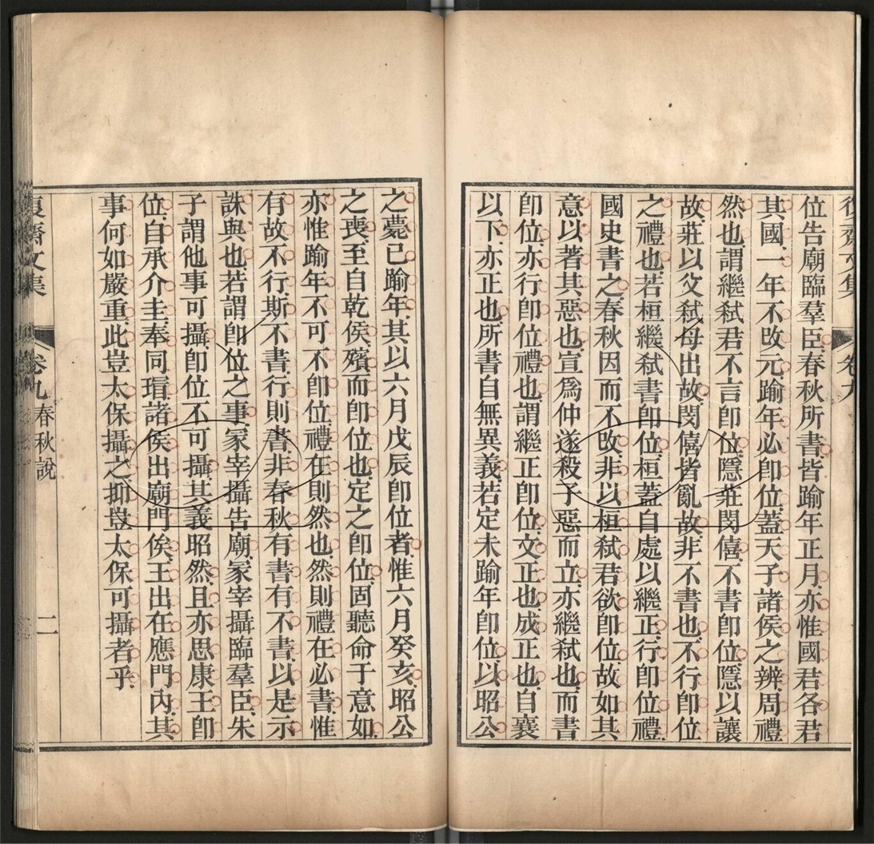 位告廟臨羣臣春秋所書皆踰年正月亦惟國君各君
其國一年不改元踰年必卽位蓋天子諸侯之辨周禮
然也謂繼弒君不言卽位隱莊閔僖不書卽位隱以讓
故莊以父弒母出故閔僖皆亂故非不書也不行卽位
之禮也若桓繼弒書卽位桓蓋自處以繼正行卽位禮
國史書之春秋因而不改非以桓弒君欲卽位故如其
意以著其惡也宣爲仲遂殺子惡而立亦繼弒也而書
卽位亦行卽位禮也謂繼正卽位文正也成正也自襄
以下亦正也所書自無異義若定未踰年卽位以昭公
之薨已踰年其以六月戊辰卽位者惟六月癸亥昭公
之喪至自乾侯殯而卽位也定之卽位固聽命于意如
亦惟踰年不可不卽位禮在則然也然則禮在必書惟
有故不行斯不書行則書非春秋有書有不書以是示
誅與也若謂卽位之事冢宰攝告廟冢宰攝臨羣臣朱
子謂他事可攝卽位不可攝其義昭然且亦思康王卽
位自承介圭奉同瑁諸侯出廟門俟王出在應門內其
事何如嚴重此豈太保攝之抑豈太保可攝者乎
復齋文集
卷九春秋說
二